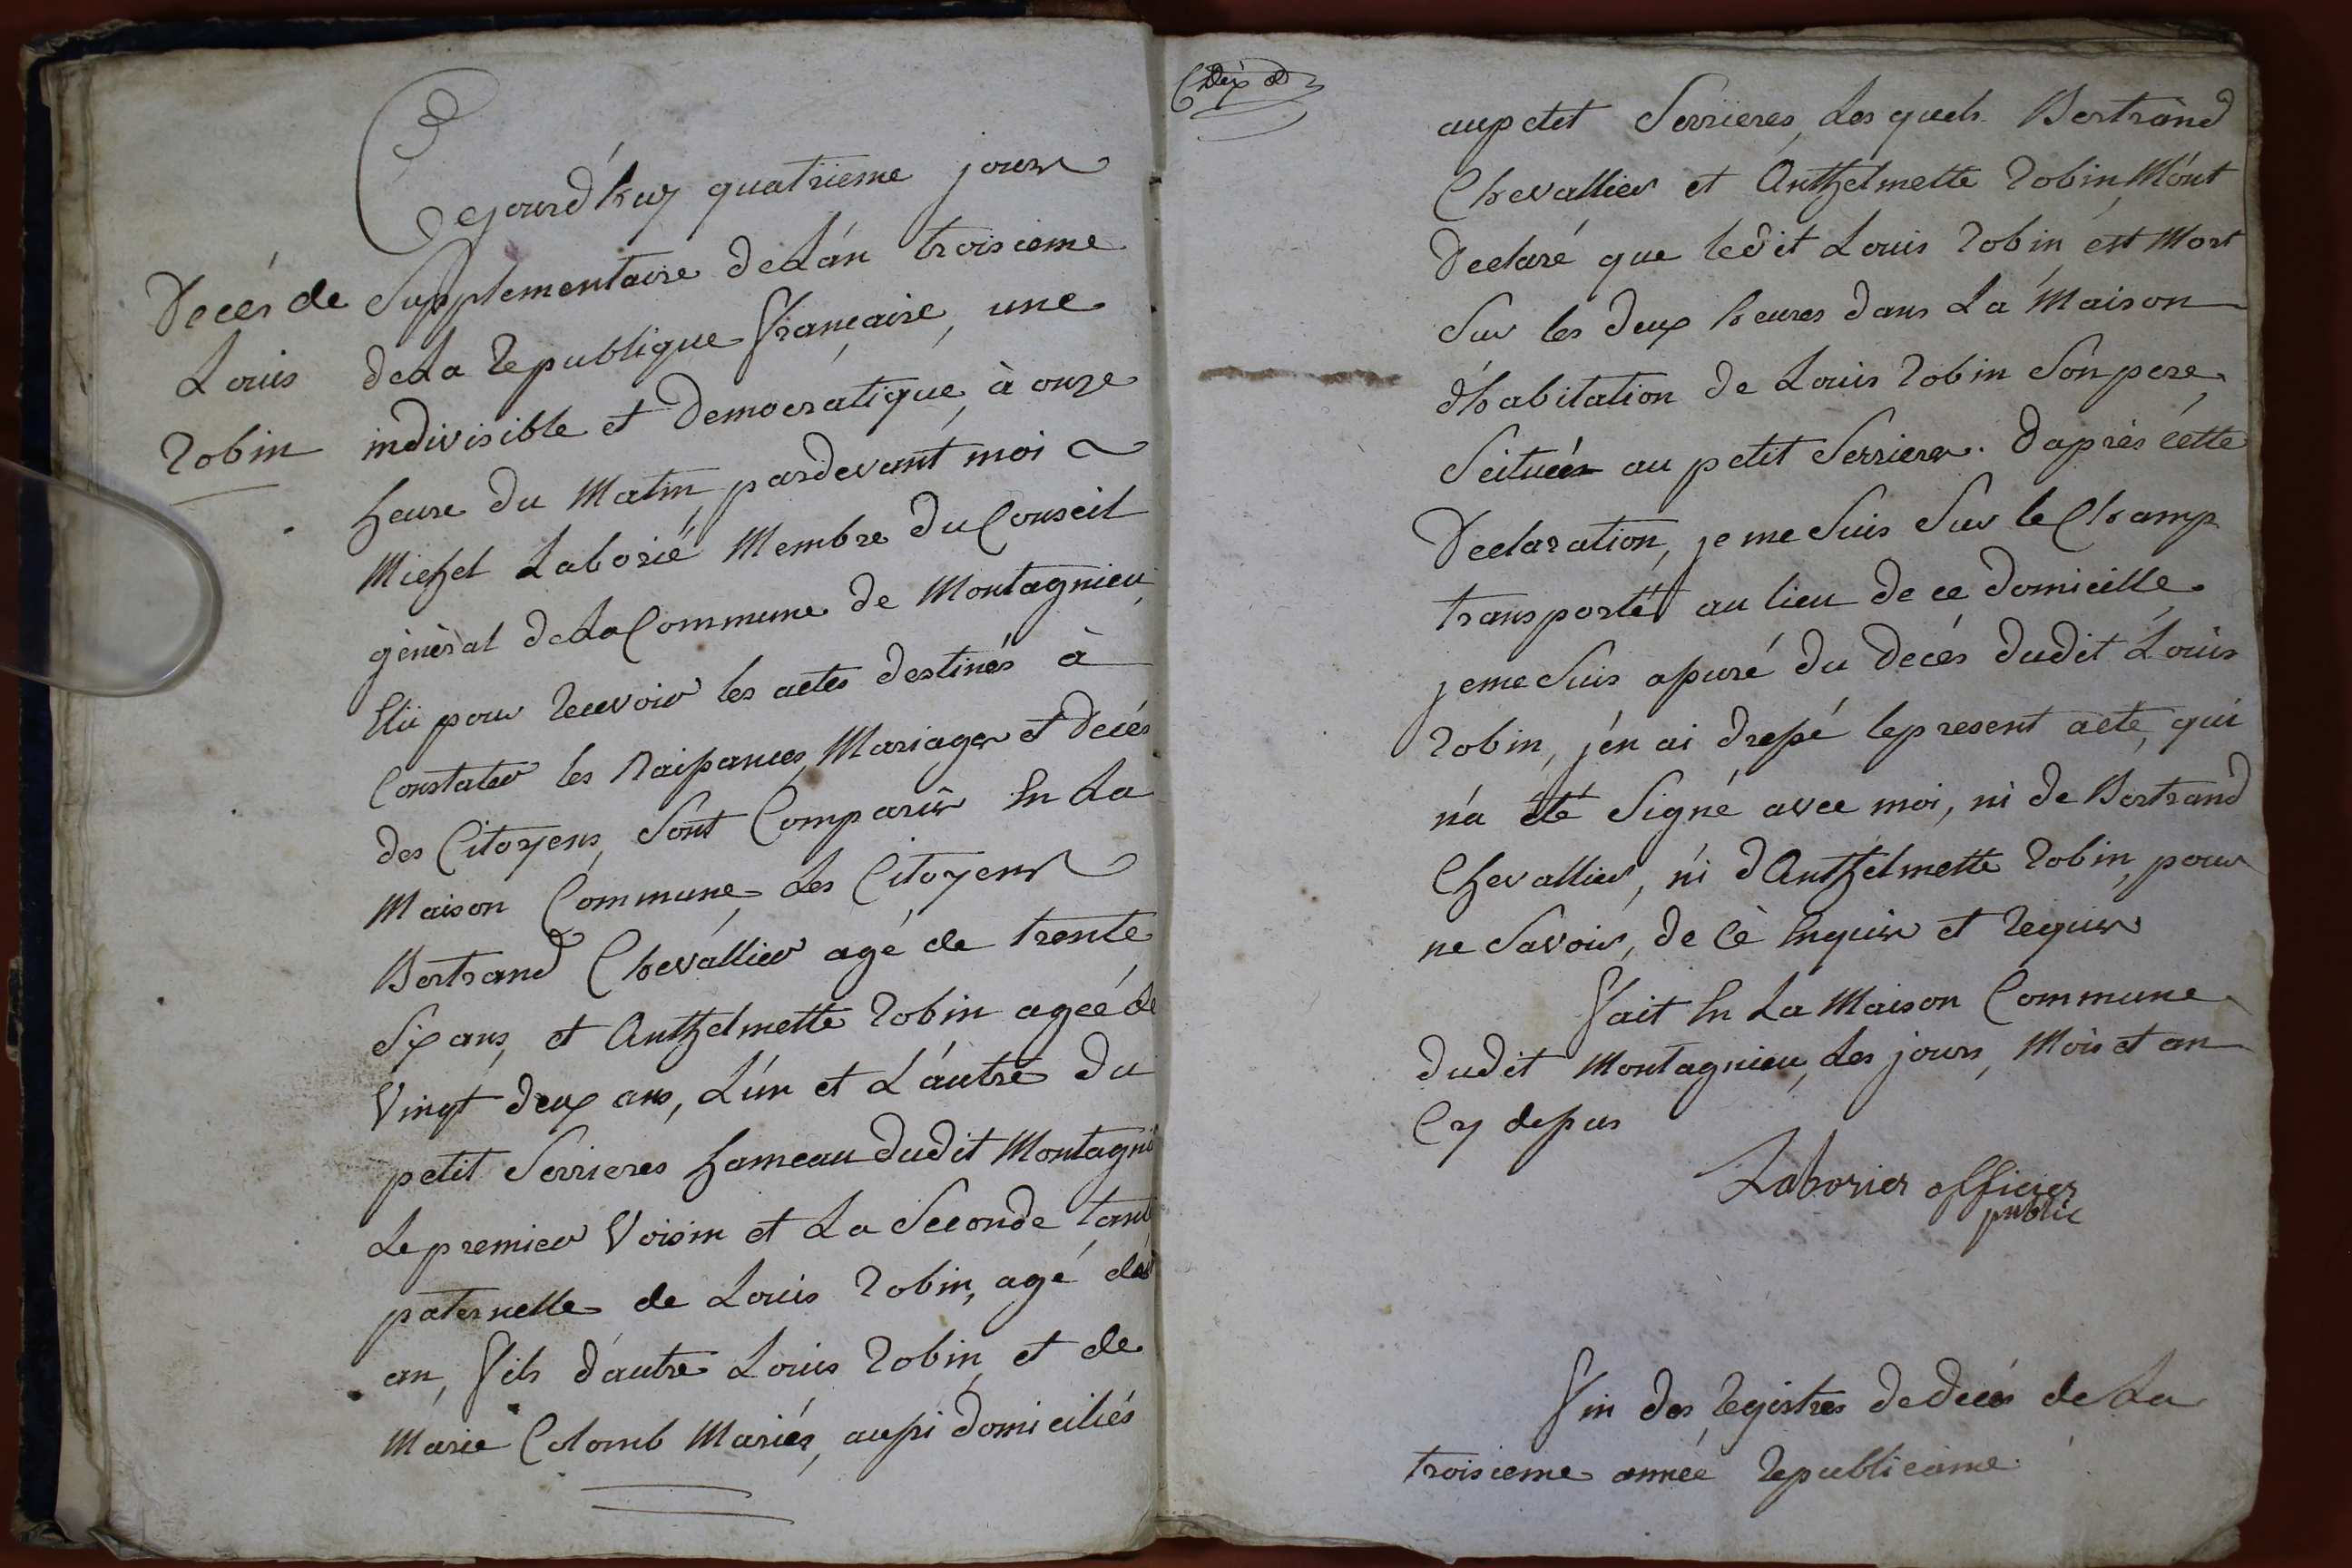 Decés de
Louis
Robin
Cejourd'huy quatrieme jour
Supplementaire de Lan troisieme
de La Republique francaise, une
indivisible et Democratique, à onze
heure du Matin, pardevant moi
Michel Laborié Membre du Conseil
général de La Commune de Montagnieu,
Elü pour Recevoir les actes destinés à
Constater les Naissances, Mariages et Decés
des Citoyens, Sont Comparus En La
Maison Commune, Les Citoyens
Bertrand Chevallier agé de trente
Six ans, et Anthelmette Robin ageé de
Vingt deux ans, L'un et L'autre du
petit Serrieres hameau dudit Montagni
Le premier Voisin et La Seconde tante
paternelle de Louis Robin, agé
an, fils d'autre Louis Robin, et de
Marie Colomb Mariés, aussi domiciliés
au petit Serrieres, Les quels Bertrand
Chevallier et Anthelmette Robin, M'ont
Declaré que ledit Louis Robin est Mort
Sur les deux heures dans La Maison
d'habitation de Louis Robin Son pere,
Scituée au petit Serrieres. D'après cette
Declaration, je me Suis Sur le Champ
transporté au lieu de ce domicille,
je me Suis assuré du Decés dudit Louis
Robin, j'en ai dressé le present acte, qui
n'a été Signé avec moi, ni de Bertrand
Chevallier, ni d'Anthelmette Robin, pour
ne Savoir, de Cè Enquis et Requis
fait En La Maison Commune
dudit Montagnieu, Les jours, Mois et an
Cy dessus
Laborier officier
public
Fin des Registres de decés de La
troisieme année Republicaine